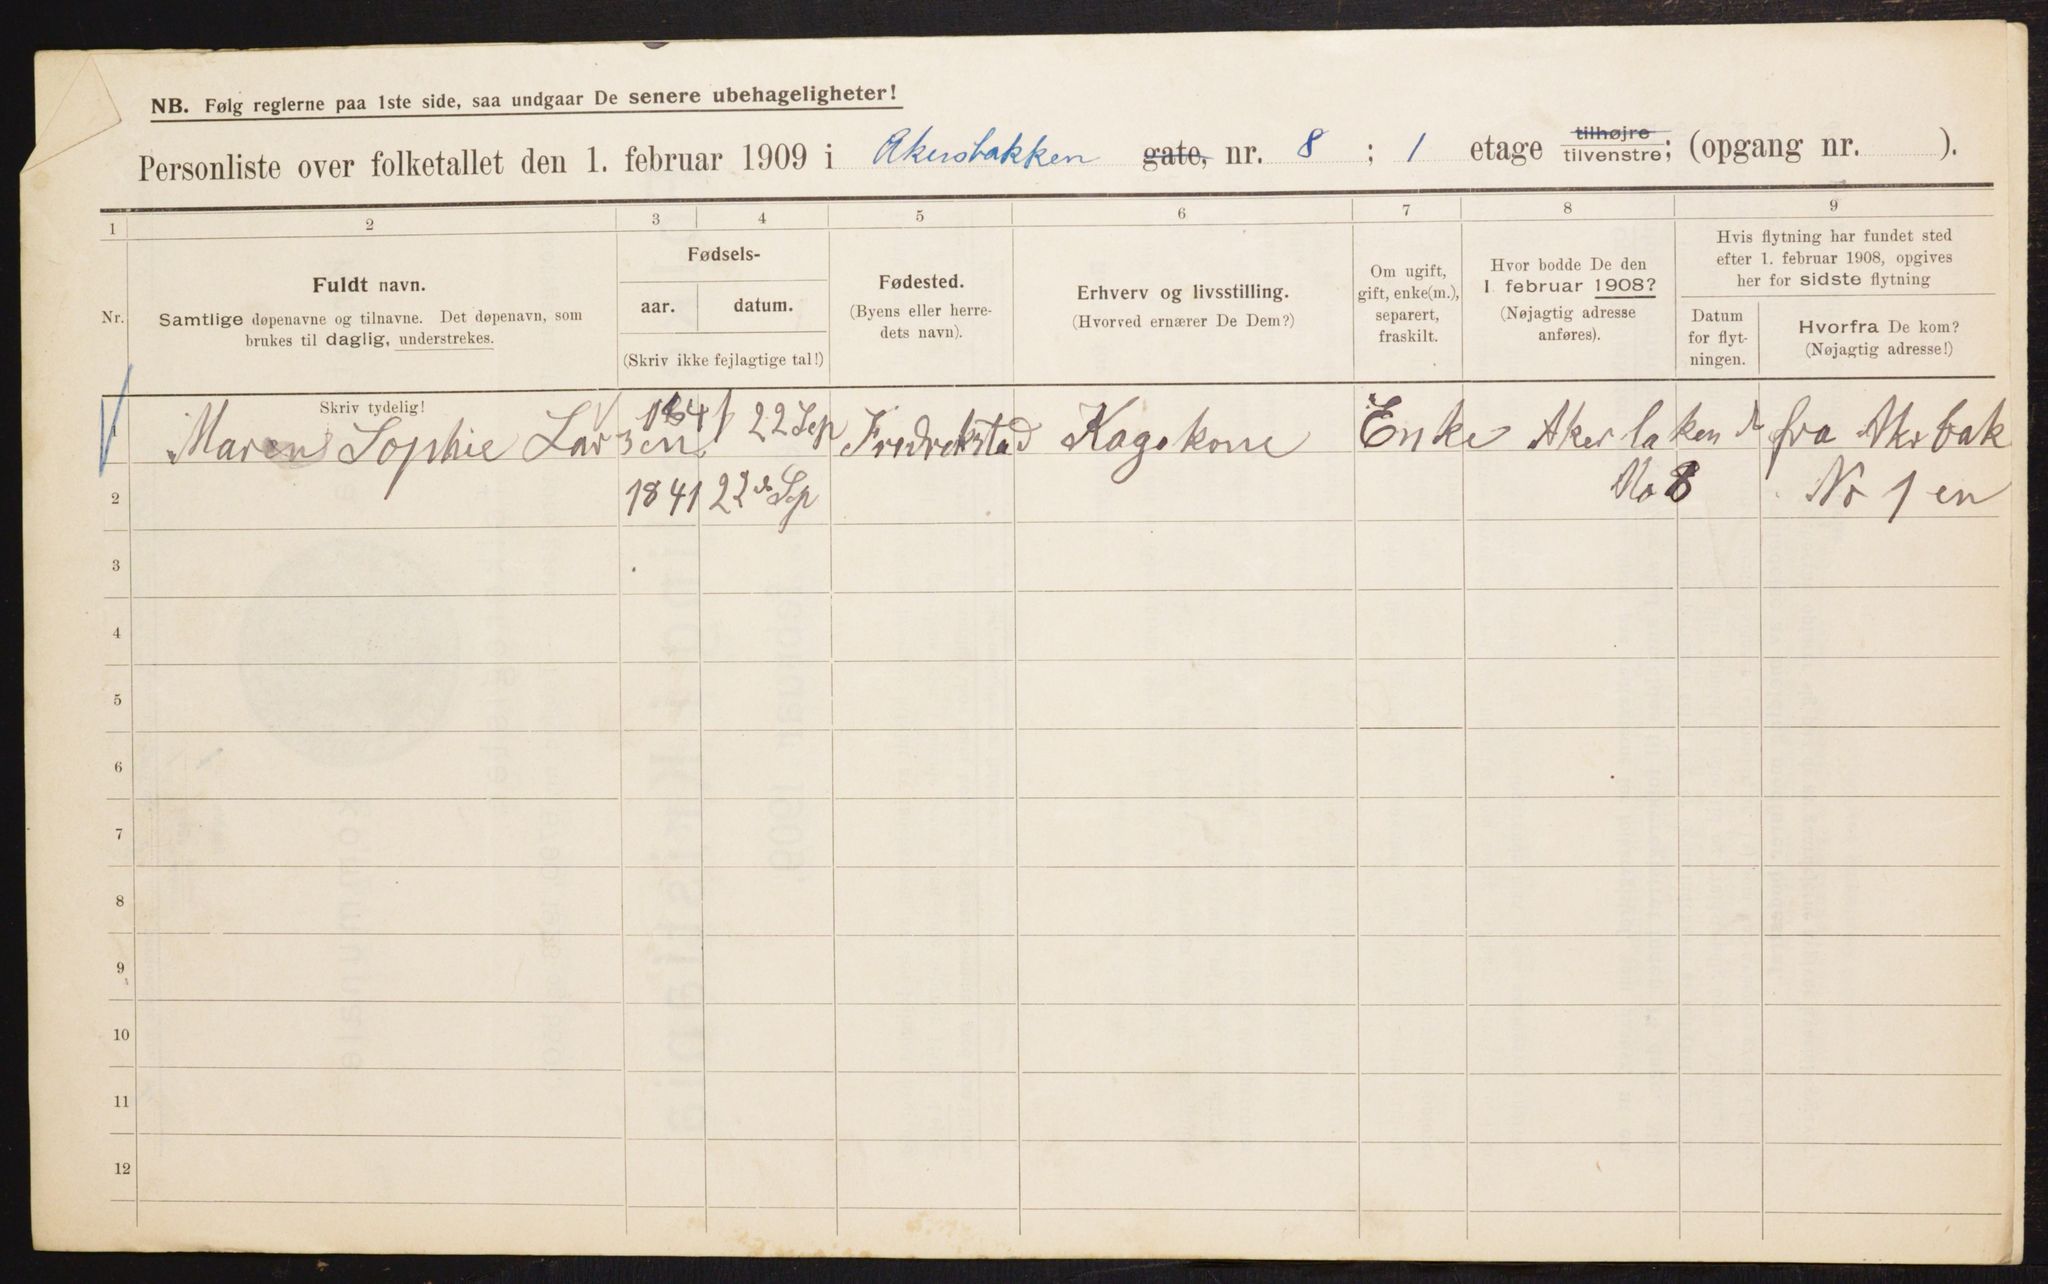 NB. Følg reglerne paa 1ste side, saa undgaar De senere ubehageligheter!
Personliste over folketallet den 1. februar 1909 i Akersbakken gate, nr. 8 ; 1 etage tilhøjre tilvenstre; (opgang nr. ).
1 2 3 4 5 6 7 8 9
Nr.
Fuldt navn.
Samtlige døpenavne og tilnavne. Det døpenavn, som
brukes til daglig, understrekes.
Skriv tydelig!
Fødsels-
aar. datum.
(Skriv ikke fejlagtige tal!)
Fødested.
(Byens eller herre-
dets navn).
Erhverv og livsstilling.
(Hvorved ernærer De Dem?)
Om ugift,
gift, enke(m.),
separert,
fraskilt.
Hvor bodde De den
1. februar 1908?
(Nøjagtig adresse
anføres).
Hvis flytning har fundet sted
efter 1. februar 1908, opgives
her for sidste flytning
Datum
for flyt-
ningen.
Hvorfra De kom?
(Nøjagtig adresse!)
1 Maren Sophie Larsen 1841 22 Sep Fredrekstad Kagekone Enke Akerbaken fra Akrbak
2 1841 22 Sep No 8 No 1 en
3
4
5
6
7
8
9
10
11
12